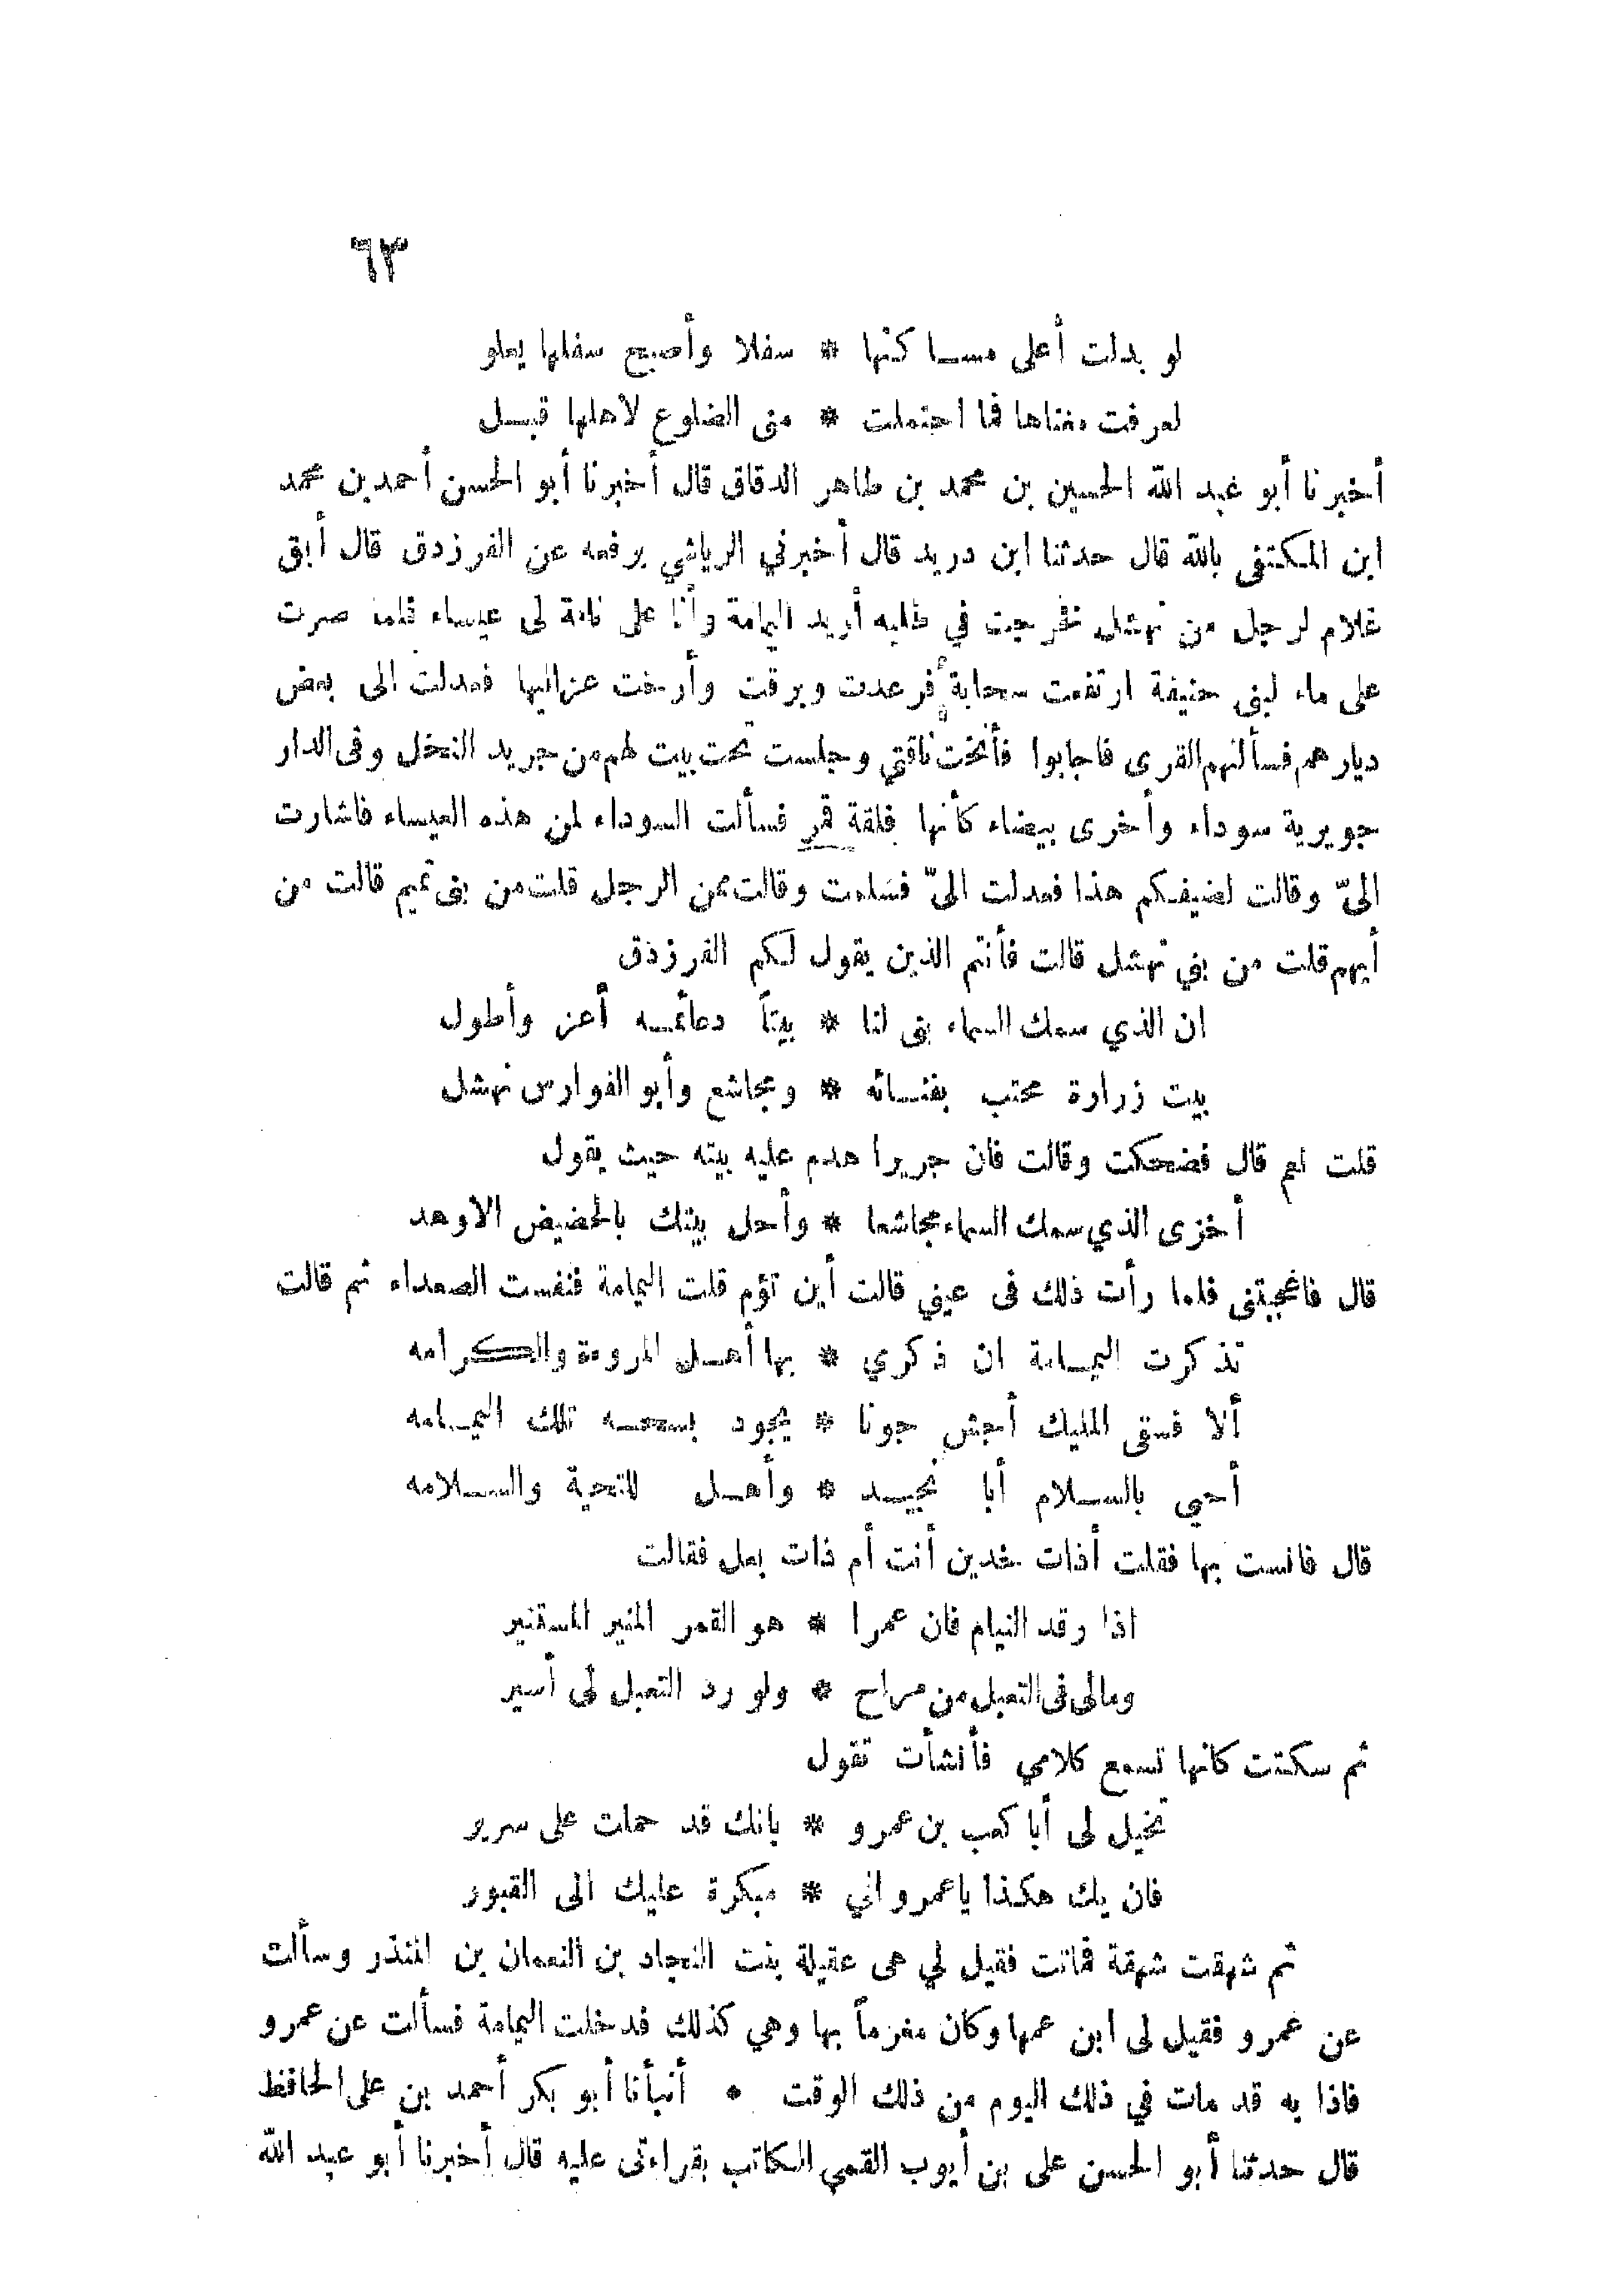 ٦٣
لو بدلت أعلى مساكنها * سفلا وأصبح سفلها يعلو
لعرفت مغناها فما احتملت * منى الضلوع لاهلها قبل
أخبرنا أبو عبد الله الحسين بن محمد بن طاهر الدقاق قال أخبرنا أبو الحسن أحمد بن محمد
ابن المكتفى بالله قال حدثنا ابن دريد قال أخبرني الرياشي يرفعه عن الفرزدق قال أبق
غلام لرجل من نهشل فخرجت في طلبه أريد اليمامة وأنا على ناقة لى عيساء فلما صرت
على ماء لبنى حنيفة ارتفعت سحابة فرعدت وبرقت وأرخت عزاليها فعدلت الى بعض
ديارهم فسألتهم القرى فاجابوا فأنخت ناقتي وجلست تحت بيت لهم من جريد النخل وفى الدار
جويرية سوداء وأخرى بيضاء كأنها فلقة قمر فسألت السوداء لمن هذه العيساء فاشارت
الىّ وقالت لضيفكم هذا فعدلت الىّ فسَلمت وقالت ممن الرجل قلت من بنى تميم قالت من
أيهم قلت من بني نهشل قالت فأنتم الذين يقول لكم الفرزدق
ان الذي سمك السماء بنى لنا * بيتاً دعائمه أعز وأطول
بيت زرارة محتب بفنائه * ومجاشع وأبو الفوارس نهشل
قلت نعم قال فضحكت وقالت فان جريرا هدم عليه بيته حيث يقول
أخزى الذي سمك السماء مجاشعا * وأحل بيتك بالحضيض الاوهد
قال فاعجبتنى فلما رأت ذلك فى عيني قالت أين تؤم قلت اليمامة فنفست الصعداء ثم قالت
تذكرت اليمامة ان ذكري * بها أهل المروءة والكرامه
ألا فسقى المليك أجش جونا * يجود بسحه تلك اليمامه
أحيي بالسلام أبا نجيد * وأهل للتحية والسلامه
قال فانست بها فقلت أذات خدين أنت أم ذات بعل فقالت
اذا رقد النيام فان عمرا * هو القمر المنير المستنير
ومالى فى التعبل من مراح * ولو رد التعبل لى أسير
ثم سكتت كانها تسمع كلامي فأنشأت تقول
تخيل لى أبا كعب بن عمرو * بانك قد حملت على سرير
فان يك هكذا ياعمرو اني * مبكرة عليك الى القبور
ثم شهقت شهقة فماتت فقيل لي هى عقيلة بنت النجاد بن النعمان بن المنذر وسألت
عن عمرو فقيل لى ابن عمها وكان مغرماً بها وهي كذلك فدخلت اليمامة فسألت عن عمرو
فاذا به قد مات في ذلك اليوم من ذلك الوقت * أنبأنا أبو بكر أحمد بن على الحافظ
قال حدثنا أبو الحسن على بن أيوب القمي الكاتب بقراءتى عليه قال أخبرنا أبو عبد الله